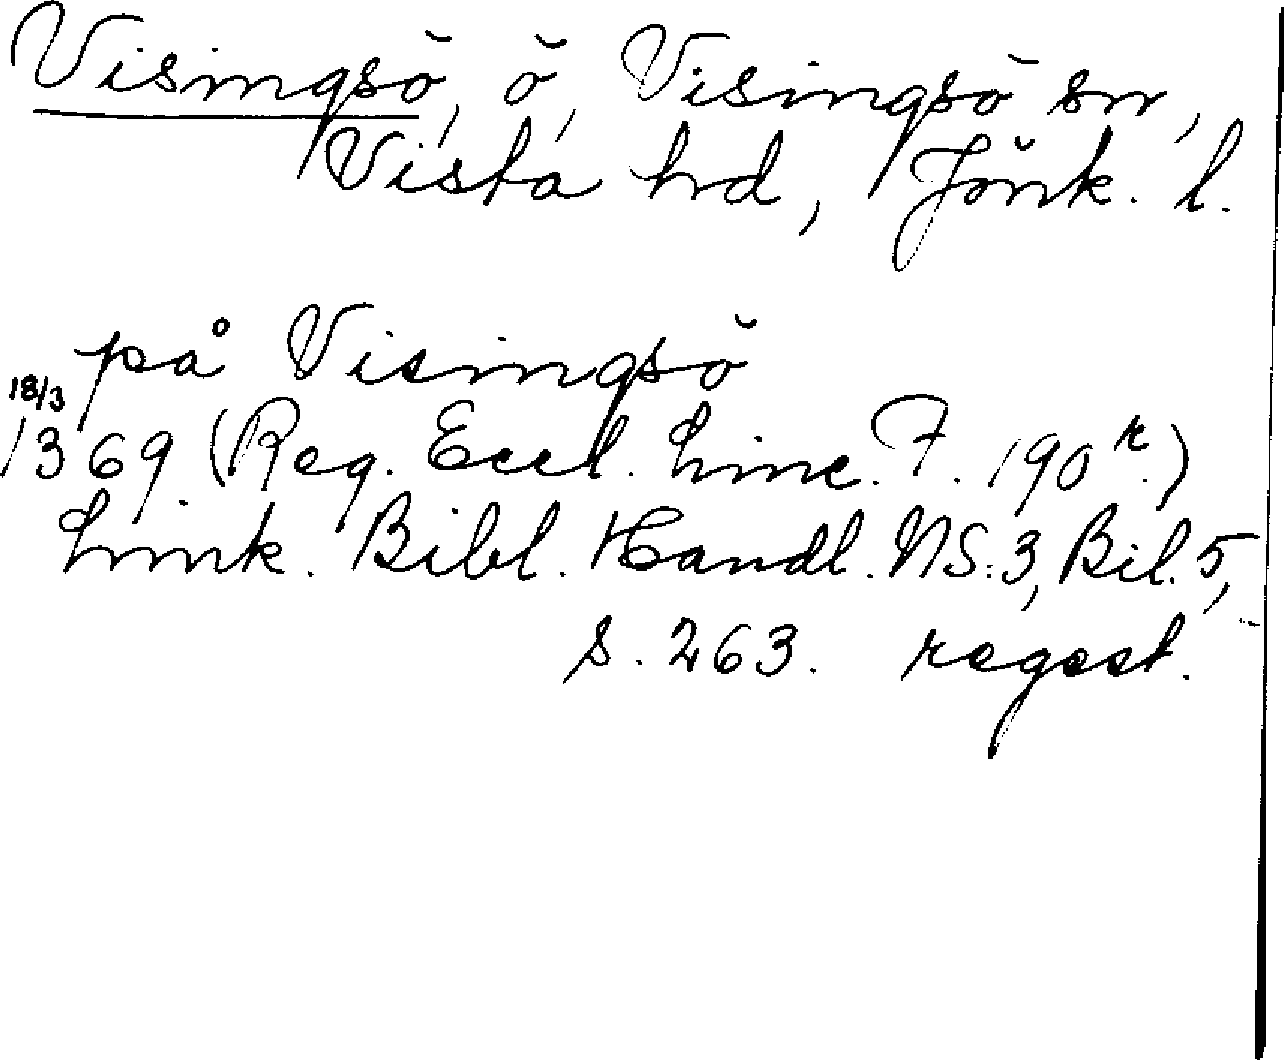 Visingsö, ö, Visingsö sn,
Vista hd, Jönk. l.
på Visingsö
18/3
1369 (Reg. Eccl. Linc. F. 190 r.)
Link. Bibl. Handl. NS:3, Bil. 5,
s. 263. regest.